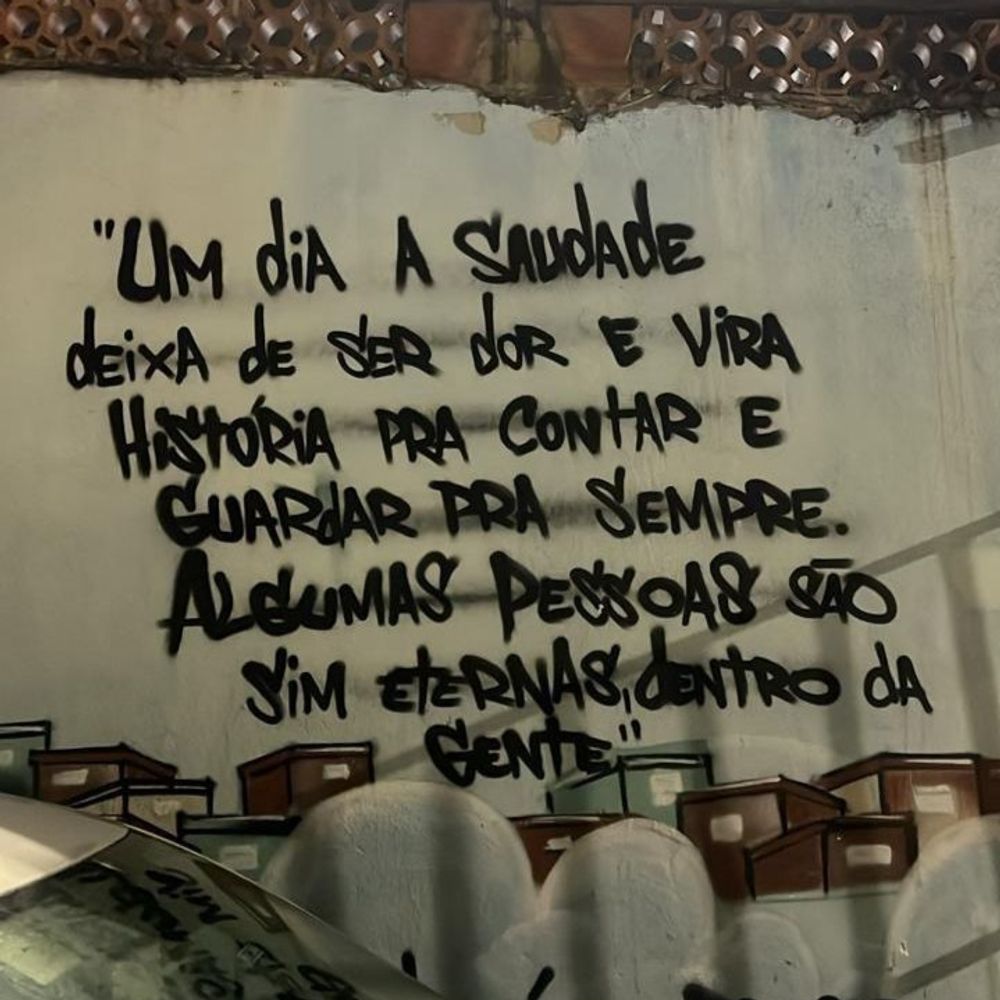 "Um dia a saudade
deixa de ser dor e vira
história pra contar e
guardar pra sempre.
Algumas pessoas são
sim eternas, dentro da
gente"